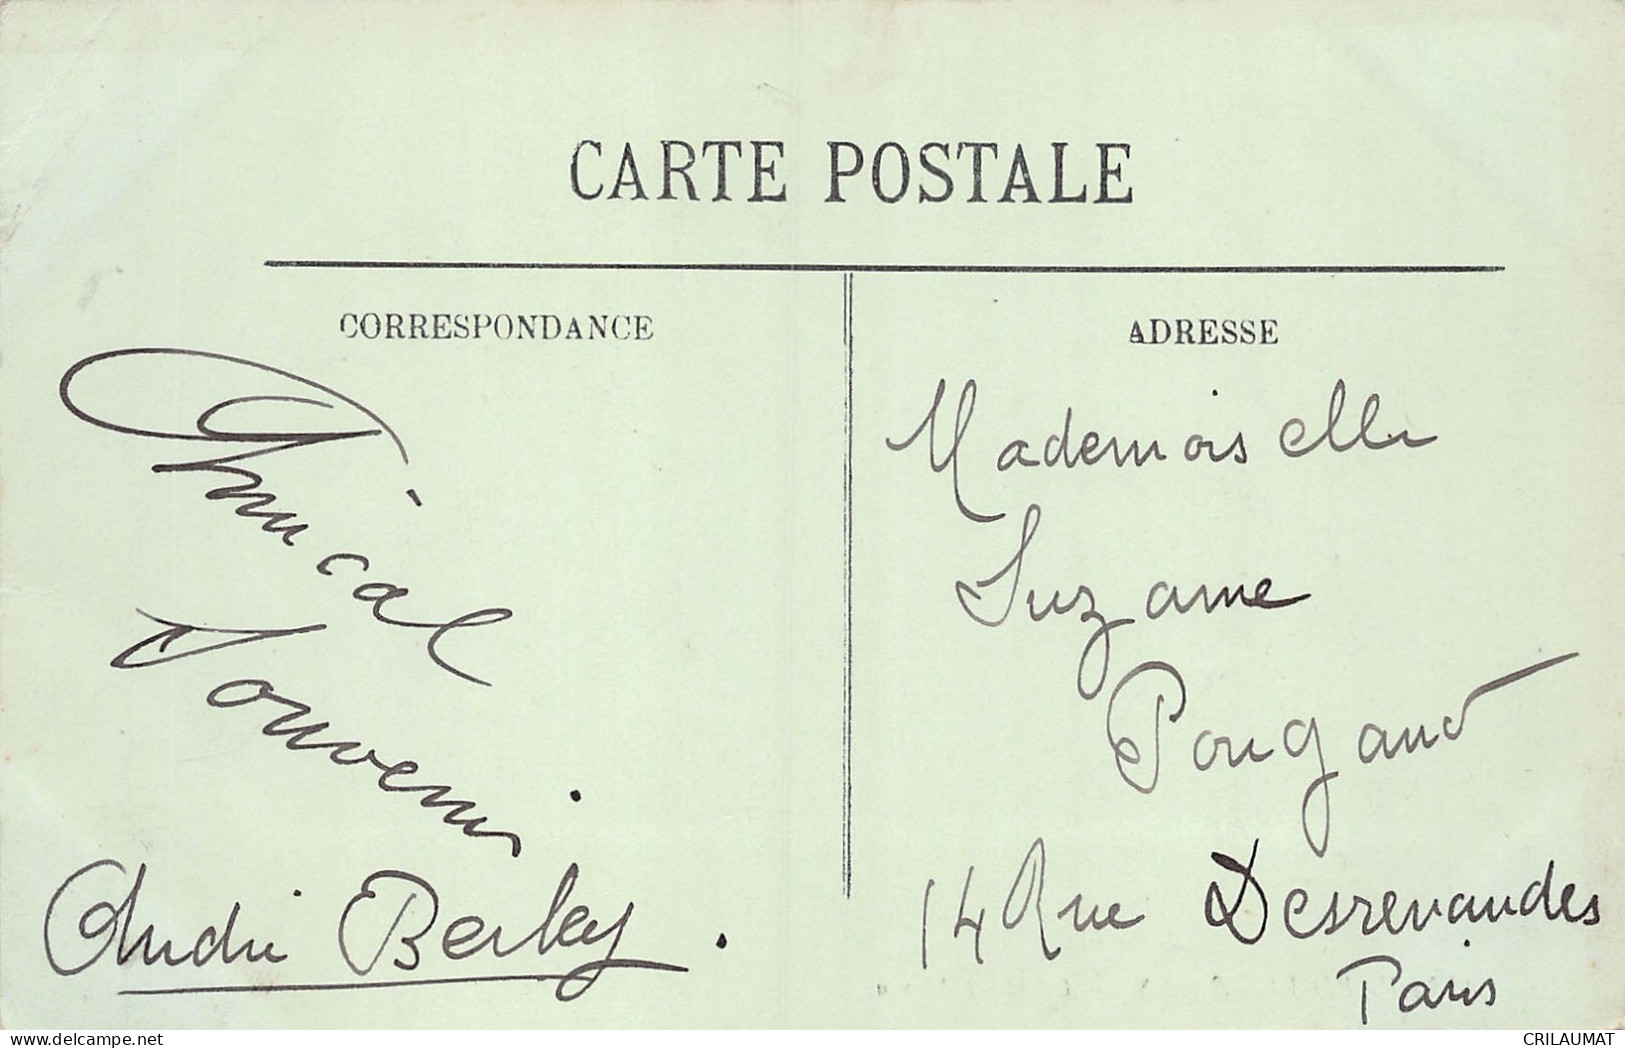 CARTE POSTALE
CORRESPONDANCE
Amical
Souvenir
André Berley.
ADRESSE
Mademoiselle
Suzanne
Pougaud
14 Rue Desrenaudes
Paris
delcampe.net
CRILAUMAT